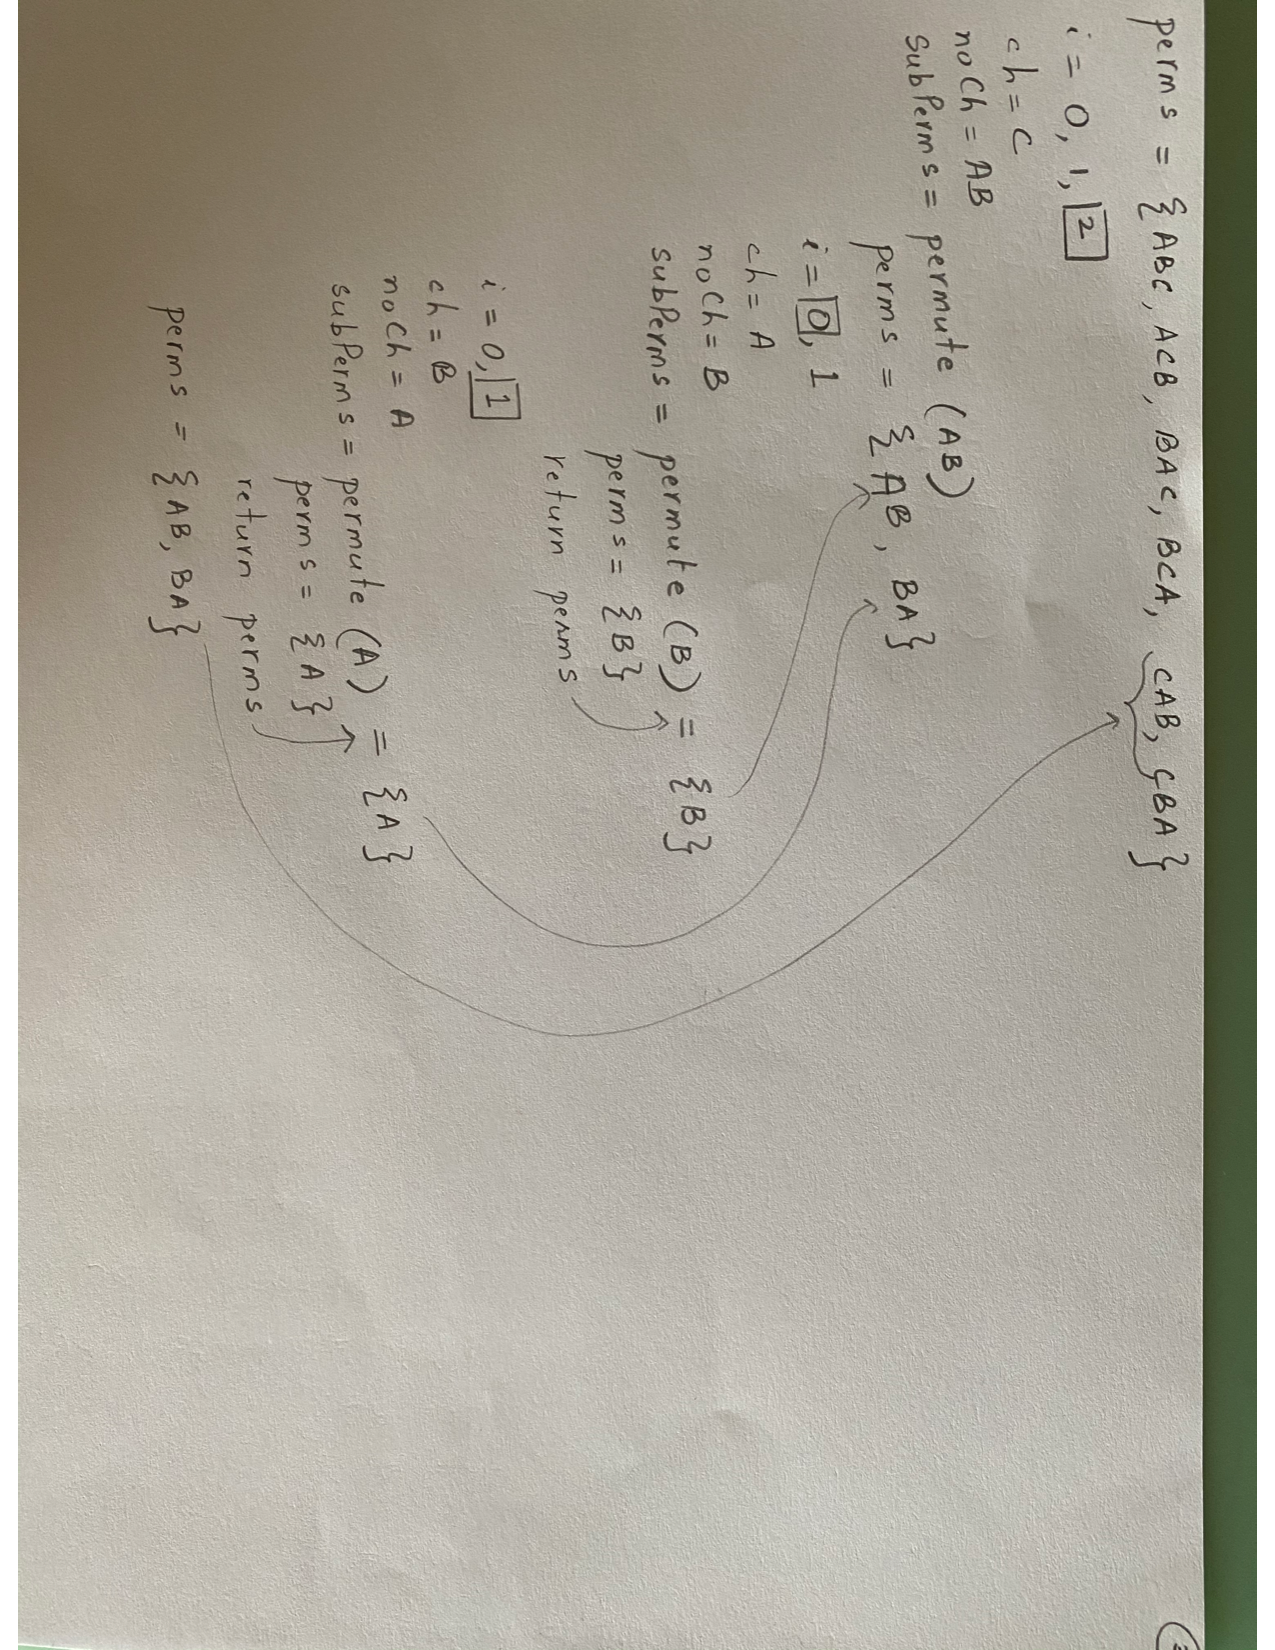 perms = {ABC, ACB, BAC, BCA, CAB, CBA}
i = 0, 1, 2
ch = C
noCh = AB
subPerms = permute (AB)
perms = {AB, BA}
i = 0, 1
ch = A
noCh = B
subPerms = permute (B) = {B}
perms = {B}
return perms
i = 0, 1
ch = B
noCh = A
subPerms = permute (A) = {A}
perms = {A}
return perms
perms = {AB, BA}